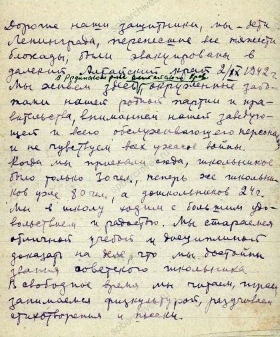 Дорогие наши защитники, мы – дети
Ленинграда, перенесшие все тяжести
блокады, были эвакуированы в
далекий Алтайский край 2/IX 1942 г.
в Родинский
Мы живем здесь, окруженные забо-
тами нашей родной партии и пра-
вительства, вниманием нашей заведую-
щей и всего обслуживающего персонала
и не чувствуем всех ужасов войны.
Когда мы приехали сюда, школьников
было только 30 чел., теперь же школьни-
ков уже 80 чел., а дошкольников 24 ч.
Мы в школу ходим с большим удо-
вольствием и радостью. Мы стараемся
отличной учебой и дисциплиной
доказать на деле, что мы достойны
звания советского школьника.
В свободное время мы читаем, играем,
занимаемся физкультурой, разучиваем
стихотворения и песни.